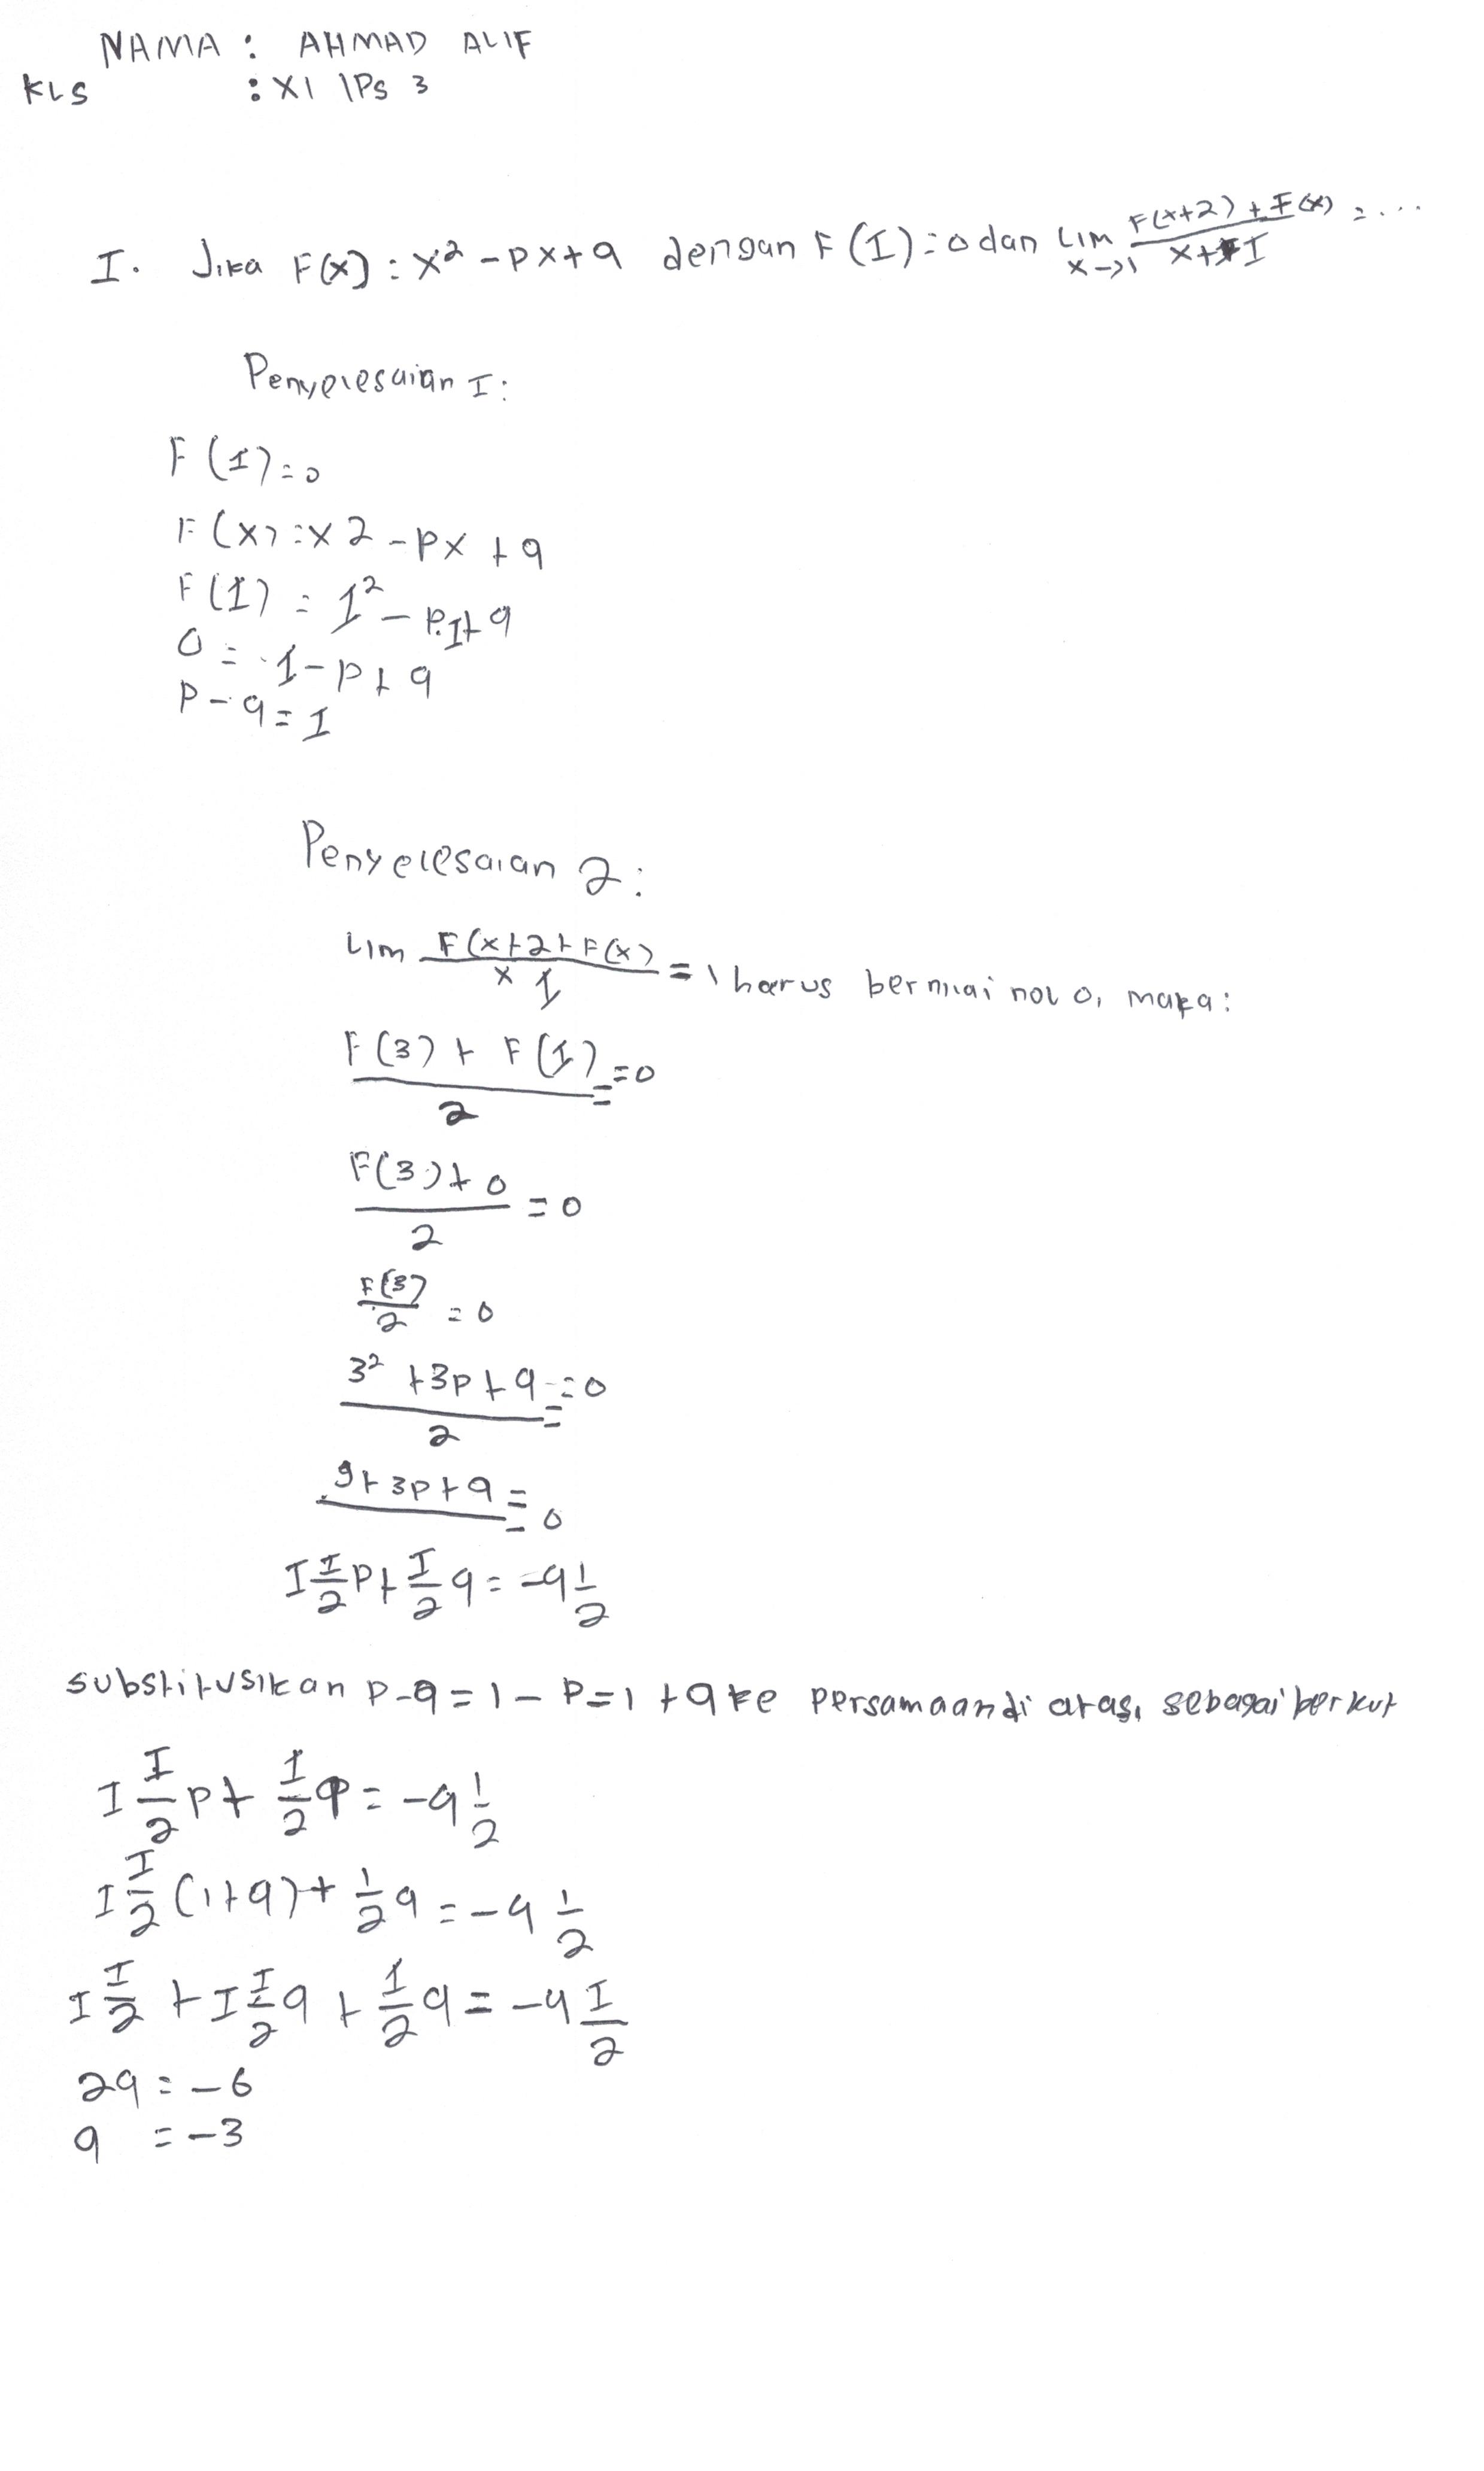 NAMA : AHMAD ALIF
KLS : XI IPS 3
I. Jika F(x) : x² - px + q dengan F(I) = 0 dan Lim x→1 F(x+2) + F(x) / x+I = ...
Penyelesaian I:
F(I) = 0
F(x) : x2 - px + q
F(I) = I² - P.I + q
0 = 1 - p + q
P - q = I
Penyelesaian 2:
Lim F(x+2+F(x) / x I = 1 harus bernilai nol 0, maka:
F(3) + F(I) / 2 = 0
F(3) + 0 / 2 = 0
F(3) / 2 = 0
3² + 3p + q / 2 = 0
9 + 3p + q = 0
I I/2 p + I/2 q = -4 1/2
substitusikan p - q = 1 - P = 1 + q ke persamaan di atas, sebagai berkut
I I/2 p + 1/2 q = -4 1/2
I I/2 (1+q) + 1/2 q = -4 1/2
I I/2 + I I/2 q + 1/2 q = -4 I/2
2q = -6
q = -3